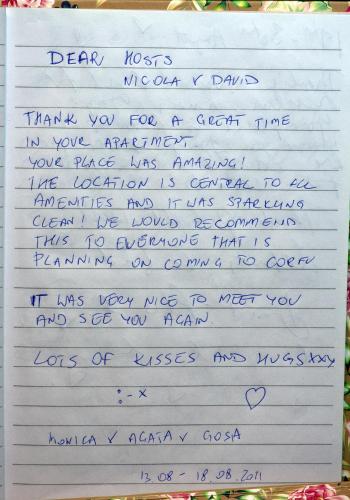 DEAR HOSTS
NICOLA & DAVID
THANK YOU FOR A GREAT TIME
IN YOUR APARTMENT.
YOUR PLACE WAS AMAZING!
THE LOCATION IS CENTRAL TO ALL
AMENITIES AND IT WAS SPARKLING
CLEAN! WE WOULD RECOMMEND
THIS TO EVERYONE THAT IS
PLANNING ON COMING TO CORFU
IT WAS VERY NICE TO MEET YOU
AND SEE YOU AGAIN
LOTS OF KISSES AND HUGSXXX
:-x ♡
MONICA & AGATA & GOSA
13.08 - 18.08.2011